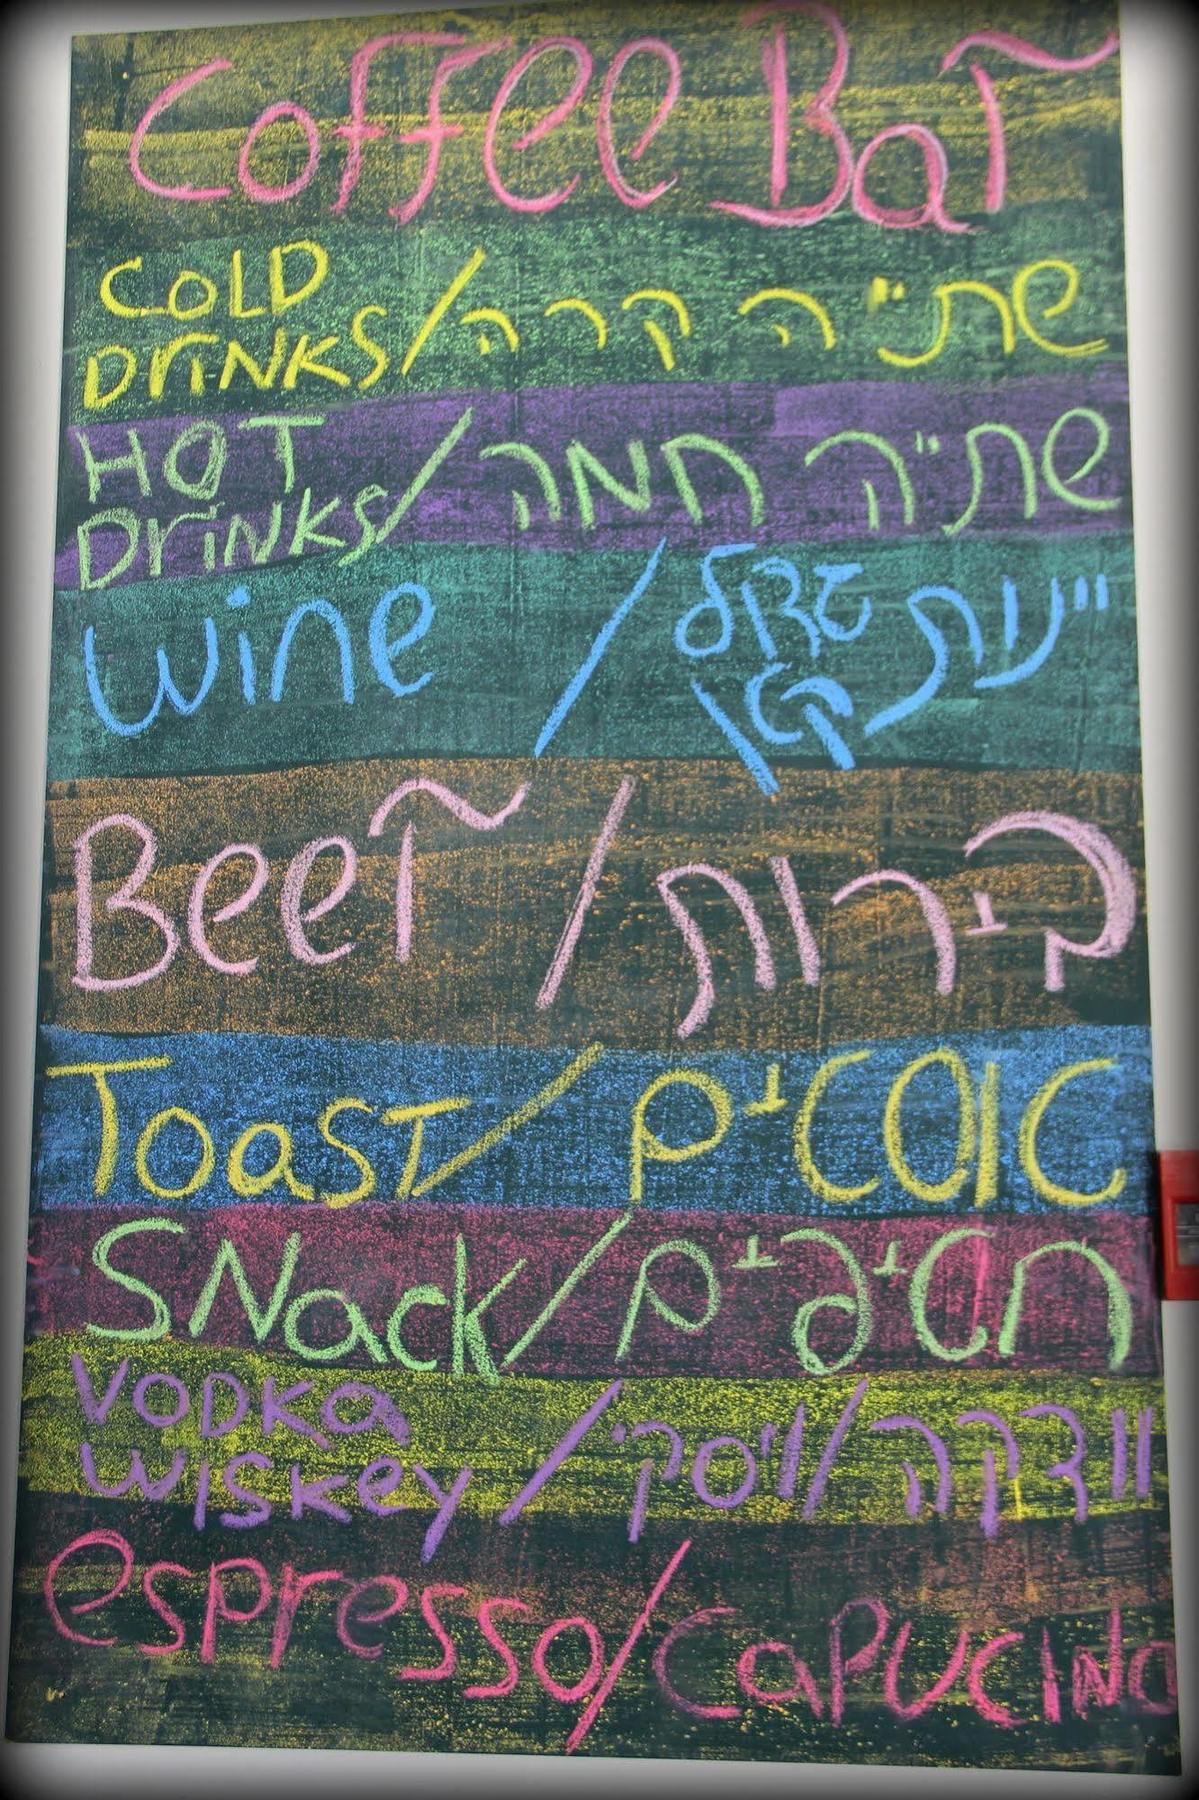 Coffee Bar
COLD
DrinKS/שתייה קרה
HOT
DrinKS/שתייה חמה
Wine / יינות גדול
קטן
Beer / בירות
Toast/טוסטים
SNack/חטיפים
VODKa
WisKey/וודקה/ויסקי
espresso/CaPUCiNo